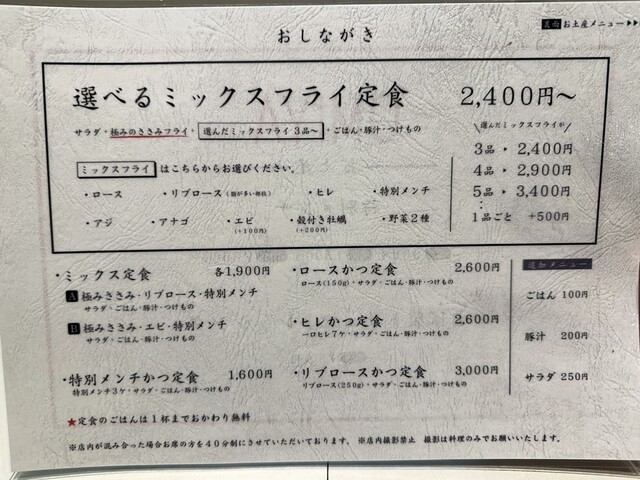 裏面 お土産メニュー▶▶
おしながき
選べるミックスフライ定食 2,400円〜
サラダ + 極みのささみフライ + 選んだミックスフライ 3品〜 + ごはん・豚汁・つけもの
ミックスフライ はこちらからお選びください。
・ロース ・リブロース(脂が多い部位) ・ヒレ ・特別メンチ
・アジ ・アナゴ ・エビ(+100円) ・殻付き牡蠣(+200円) ・野菜2種
\選んだミックスフライが/
3品 ▶ 2,400円
4品 ▶ 2,900円
5品 ▶ 3,400円
⋮
1品ごと +500円
・ミックス定食 各1,900円
A 極みささみ・リブロース・特別メンチ
サラダ・ごはん・豚汁・つけもの
B 極みささみ・エビ・特別メンチ
サラダ・ごはん・豚汁・つけもの
・特別メンチかつ定食 1,600円
特別メンチ3ケ・サラダ・ごはん・豚汁・つけもの
・ロースかつ定食 2,600円
ロース(150g)・サラダ・ごはん・豚汁・つけもの
・ヒレかつ定食 2,600円
一口ヒレ7ケ・サラダ・ごはん・豚汁・つけもの
・リブロースかつ定食 3,000円
リブロース(250g)・サラダ・ごはん・豚汁・つけもの
追加メニュー
ごはん 100円
豚汁 200円
サラダ 250円
★定食のごはんは1杯までおかわり無料
※店内が混み合った場合お席の方を40分制にさせていただいております。 ※店内撮影禁止 撮影は料理のみでお願いいたします。